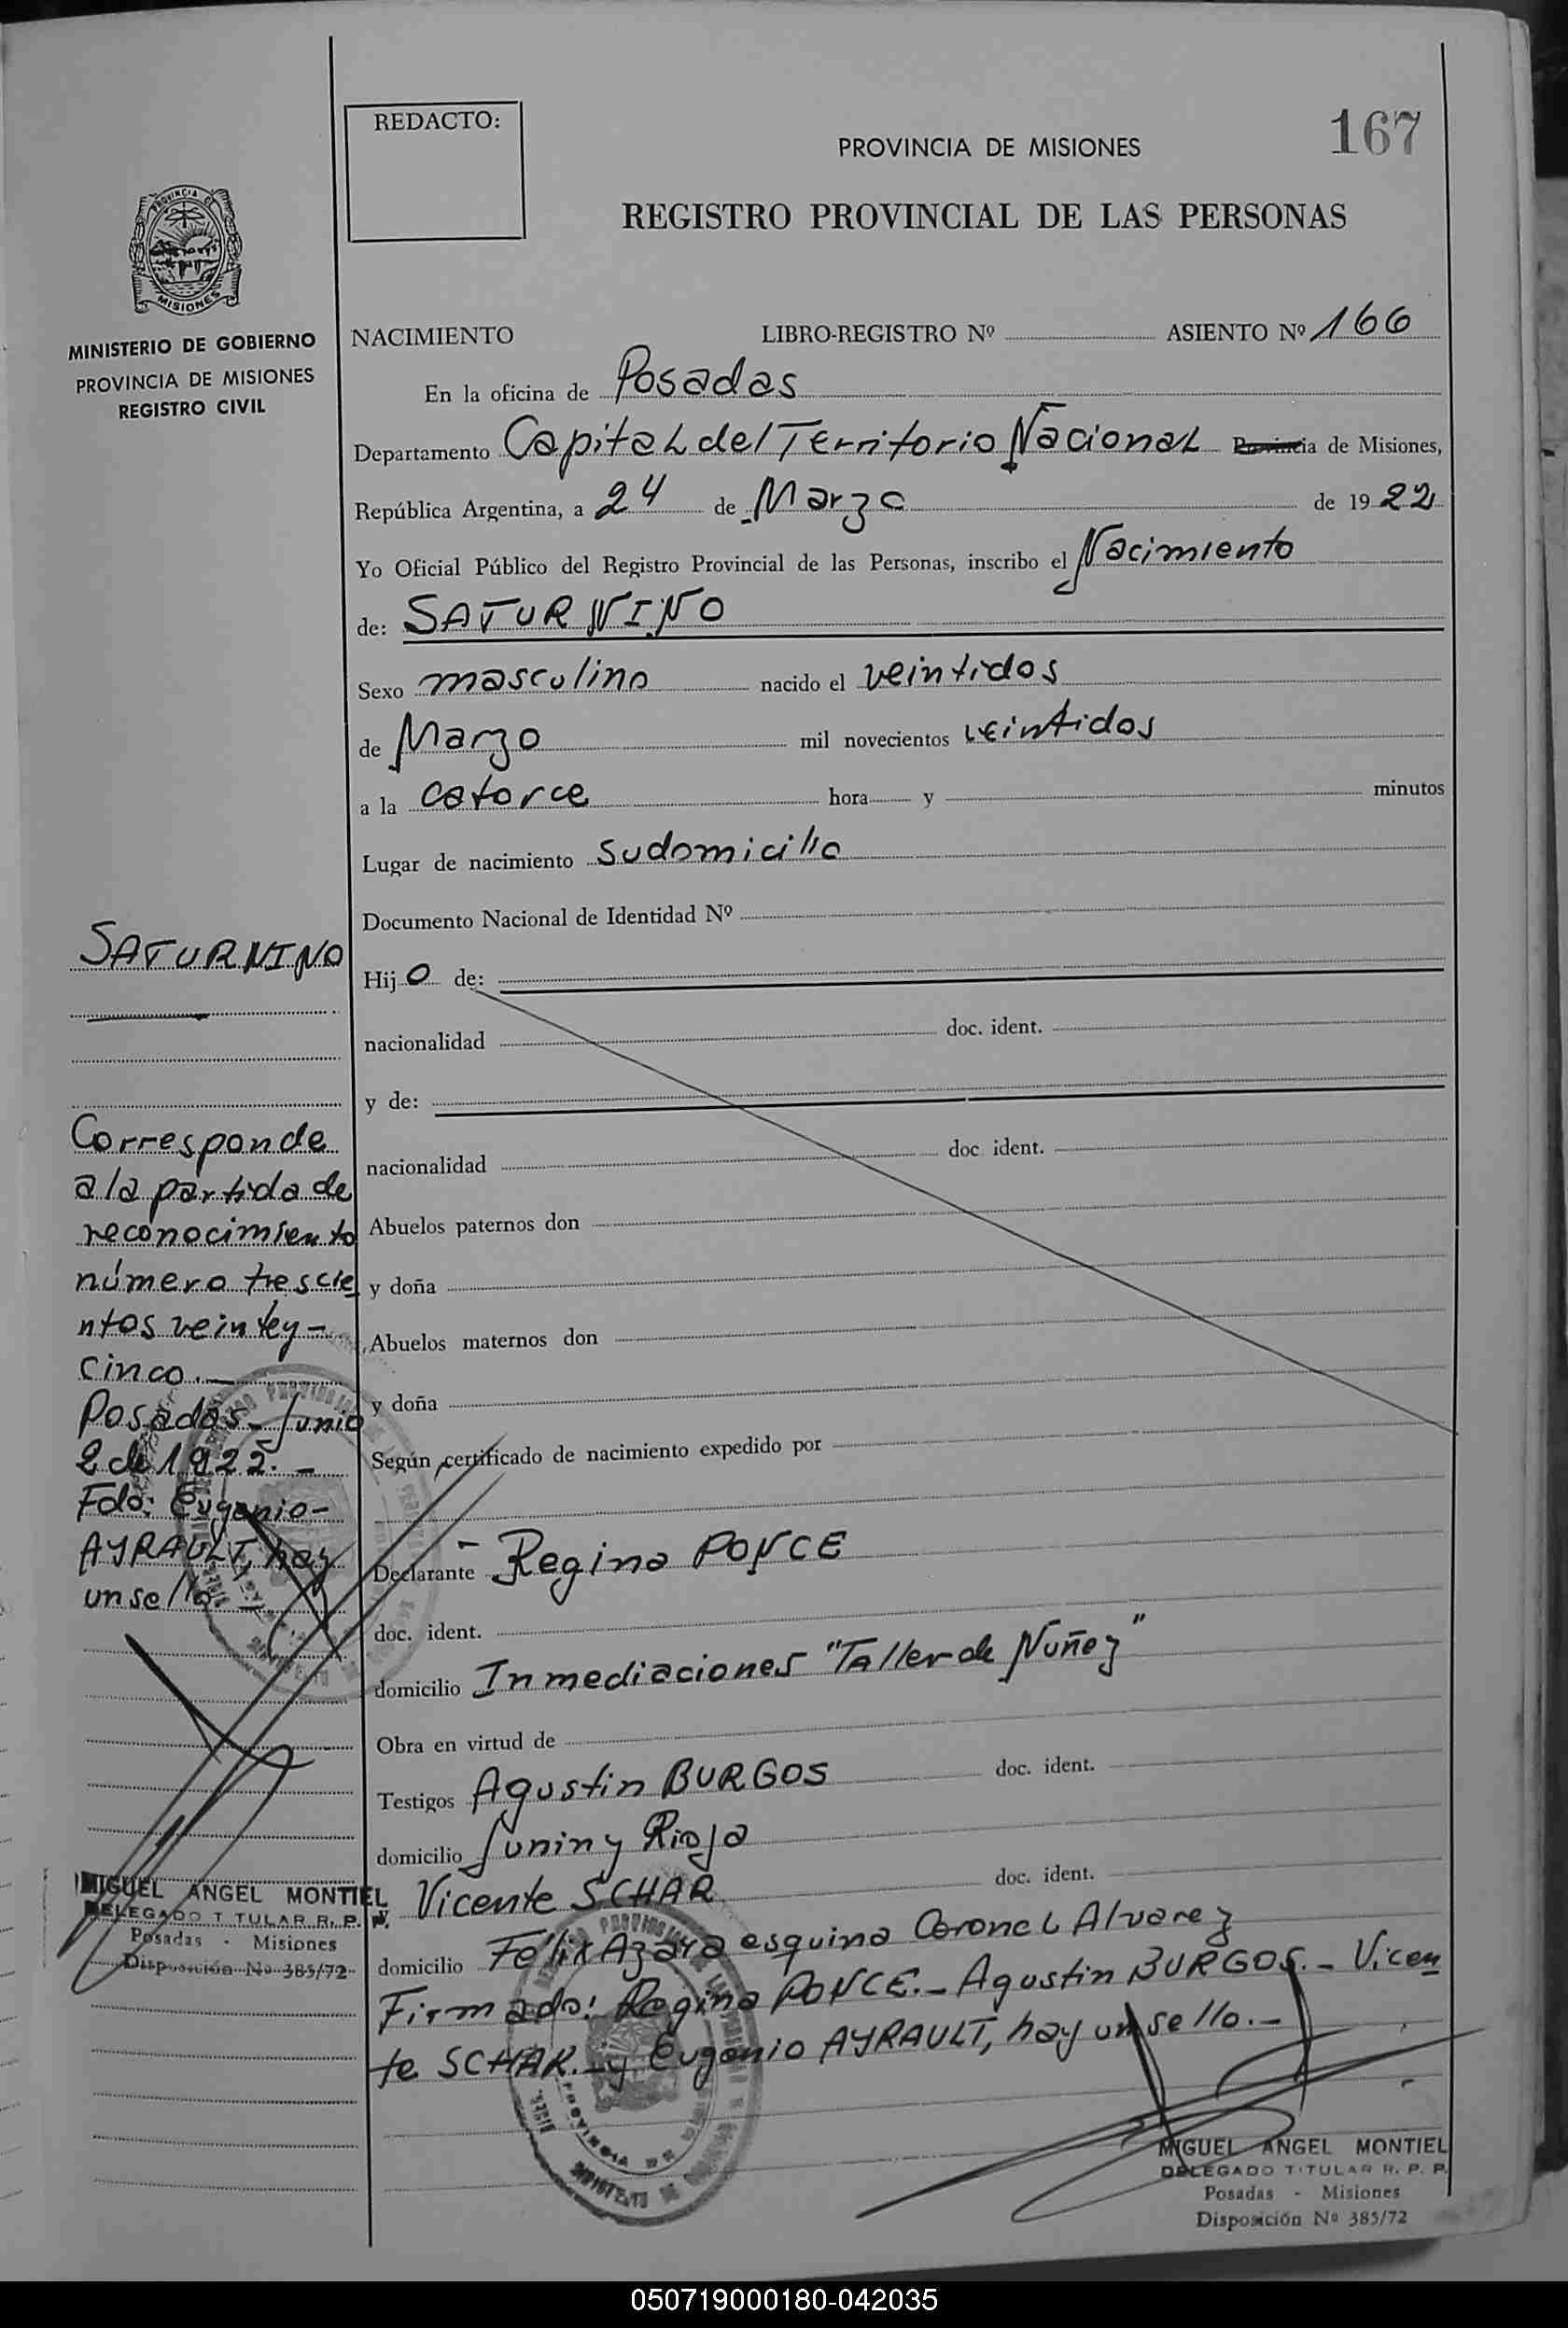 REDACTO:
167
PROVINCIA DE MISIONES
REGISTRO PROVINCIAL DE LAS PERSONAS
PROVINCIA
MISIONES
MINISTERIO DE GOBIERNO
PROVINCIA DE MISIONES
REGISTRO CIVIL
NACIMIENTO LIBRO-REGISTRO Nº ASIENTO Nº 166
En la oficina de Posadas
Departamento Capital del Territorio Nacional Provincia de Misiones,
República Argentina, a 24 de Marzo de 1922
Yo Oficial Público del Registro Provincial de las Personas, inscribo el Nacimiento
de: SATURNINO
Sexo masculino nacido el veintidos
de Marzo mil novecientos veintidos
a la catorce hora y minutos
Lugar de nacimiento Su domicilio
Documento Nacional de Identidad Nº
Hijo de:
nacionalidad doc. ident.
y de:
nacionalidad doc. ident.
Abuelos paternos don
y doña
Abuelos maternos don
y doña
Según certificado de nacimiento expedido por
Declarante Regina PONCE
doc. ident.
domicilio Inmediaciones "Taller de Nuñez"
Obra en virtud de
Testigos Agustin BURGOS doc. ident.
domicilio Junin y Rioja
y Vicente SCHAR doc. ident.
domicilio Félix Azara esquina Coronel Alvarez
Firmado: Regina PONCE.- Agustin BURGOS.- Vicen
te SCHAR.- y Eugenio AYRAULT, hay un sello.-
MIGUEL ANGEL MONTIEL
DELEGADO TITULAR R. P. P.
Posadas - Misiones
Disposición Nº 385/72
SATURNINO
Corresponde
a la partida de
reconocimiento
número trescie
ntos veintey-
cinco.-
Posadas- Junio
2 de 1922.-
Fdo: Eugenio-
AYRAULT, hay
un sello.-
MIGUEL ANGEL MONTIEL
DELEGADO TITULAR R. P. P.
Posadas - Misiones
Disposición Nº 385/72
050719000180-042035